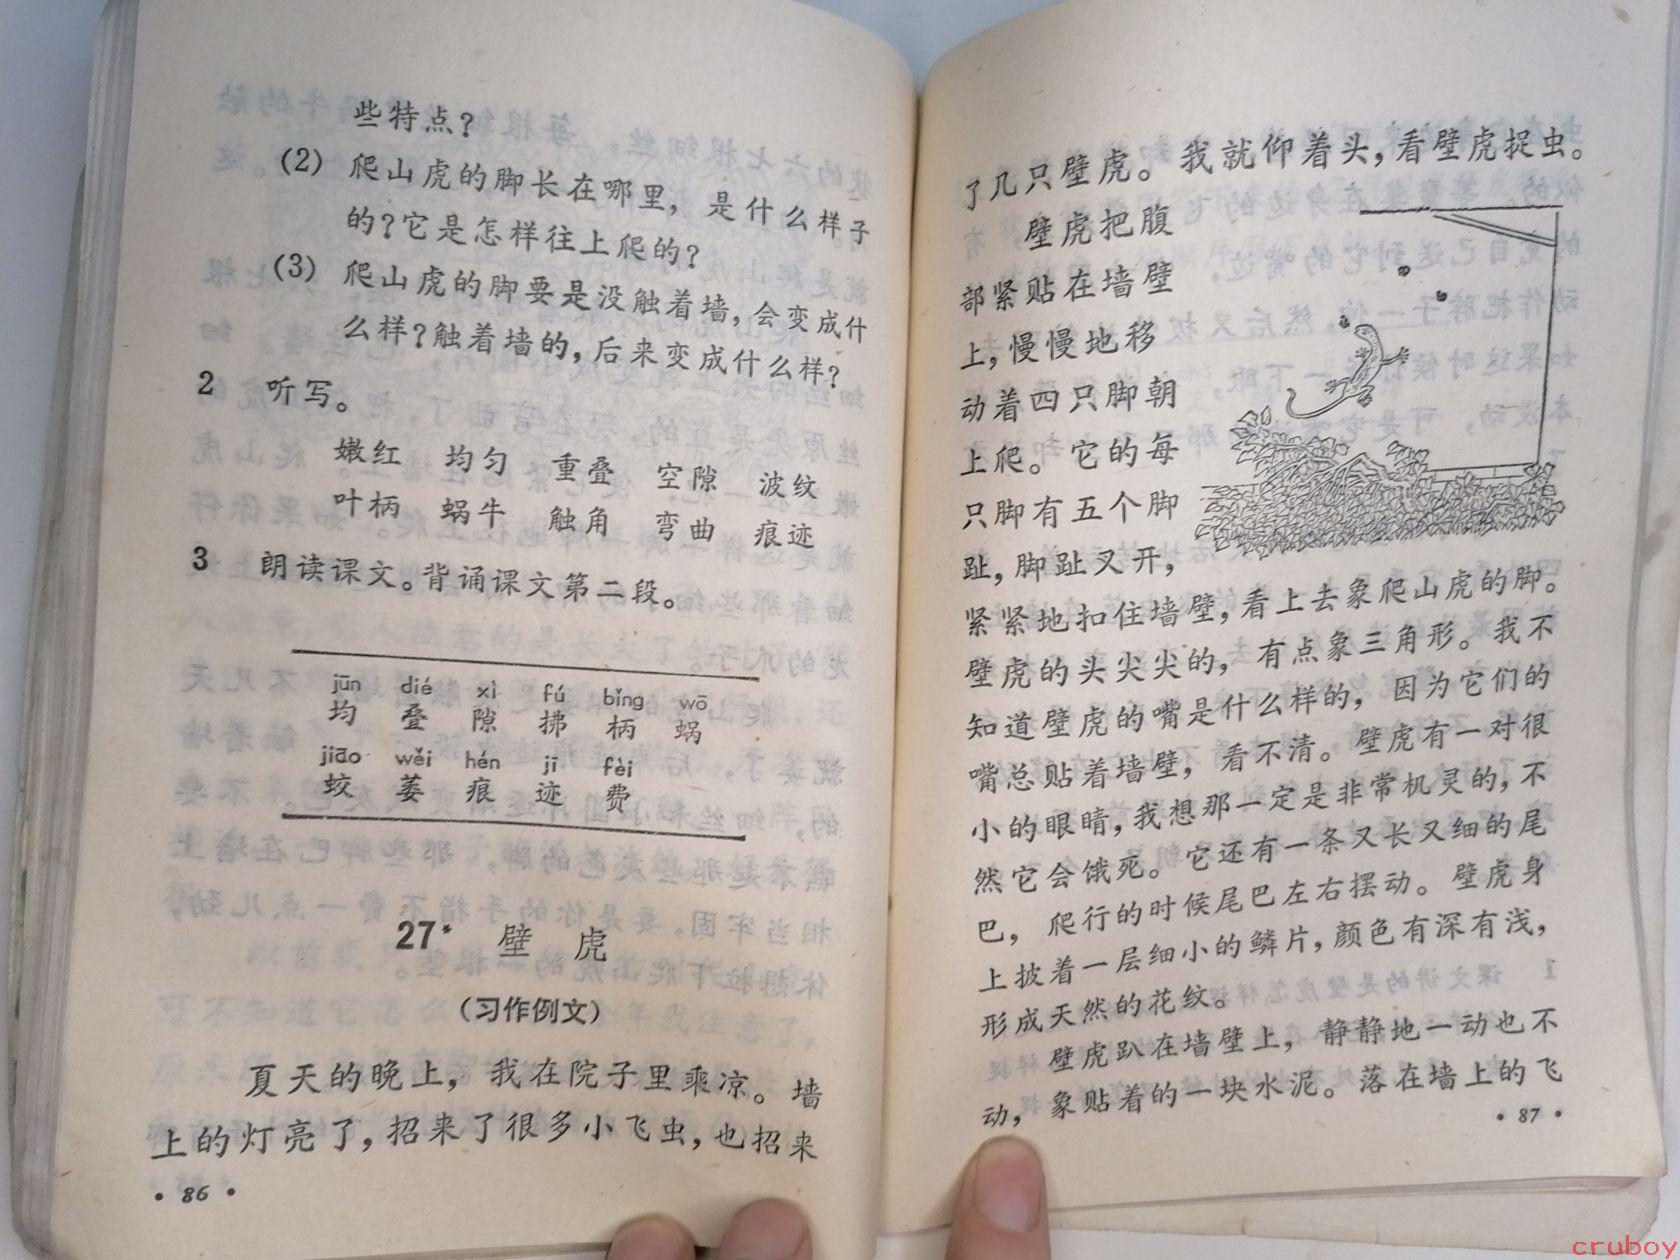 些特点？
(2) 爬山虎的脚长在哪里，是什么样子
的？它是怎样往上爬的？
(3) 爬山虎的脚要是没触着墙，会变成什
么样？触着墙的，后来变成什么样？
2 听写。
嫩红 均匀 重叠 空隙 波纹
叶柄 蜗牛 触角 弯曲 痕迹
3 朗读课文。背诵课文第二段。
jūn dié xì fú bǐng wō
均 叠 隙 拂 柄 蜗
jiāo wěi hén jī fèi
蛟 萎 痕 迹 费
27* 壁虎
(习作例文)
夏天的晚上，我在院子里乘凉。墙
上的灯亮了，招来了很多小飞虫，也招来
· 86 ·
了几只壁虎。我就仰着头，看壁虎捉虫。
壁虎把腹
部紧贴在墙壁
上，慢慢地移
动着四只脚朝
上爬。它的每
只脚有五个脚
趾，脚趾叉开，
紧紧地扣住墙壁，看上去象爬山虎的脚。
壁虎的头尖尖的，有点象三角形。我不
知道壁虎的嘴是什么样的，因为它们的
嘴总贴着墙壁，看不清。壁虎有一对很
小的眼睛，我想那一定是非常机灵的，不
然它会饿死。它还有一条又长又细的尾
巴，爬行的时候尾巴左右摆动。壁虎身
上披着一层细小的鳞片，颜色有深有浅，
形成天然的花纹。
壁虎趴在墙壁上，静静地一动也不
动，象贴着的一块水泥。落在墙上的飞
· 87 ·
cruboy